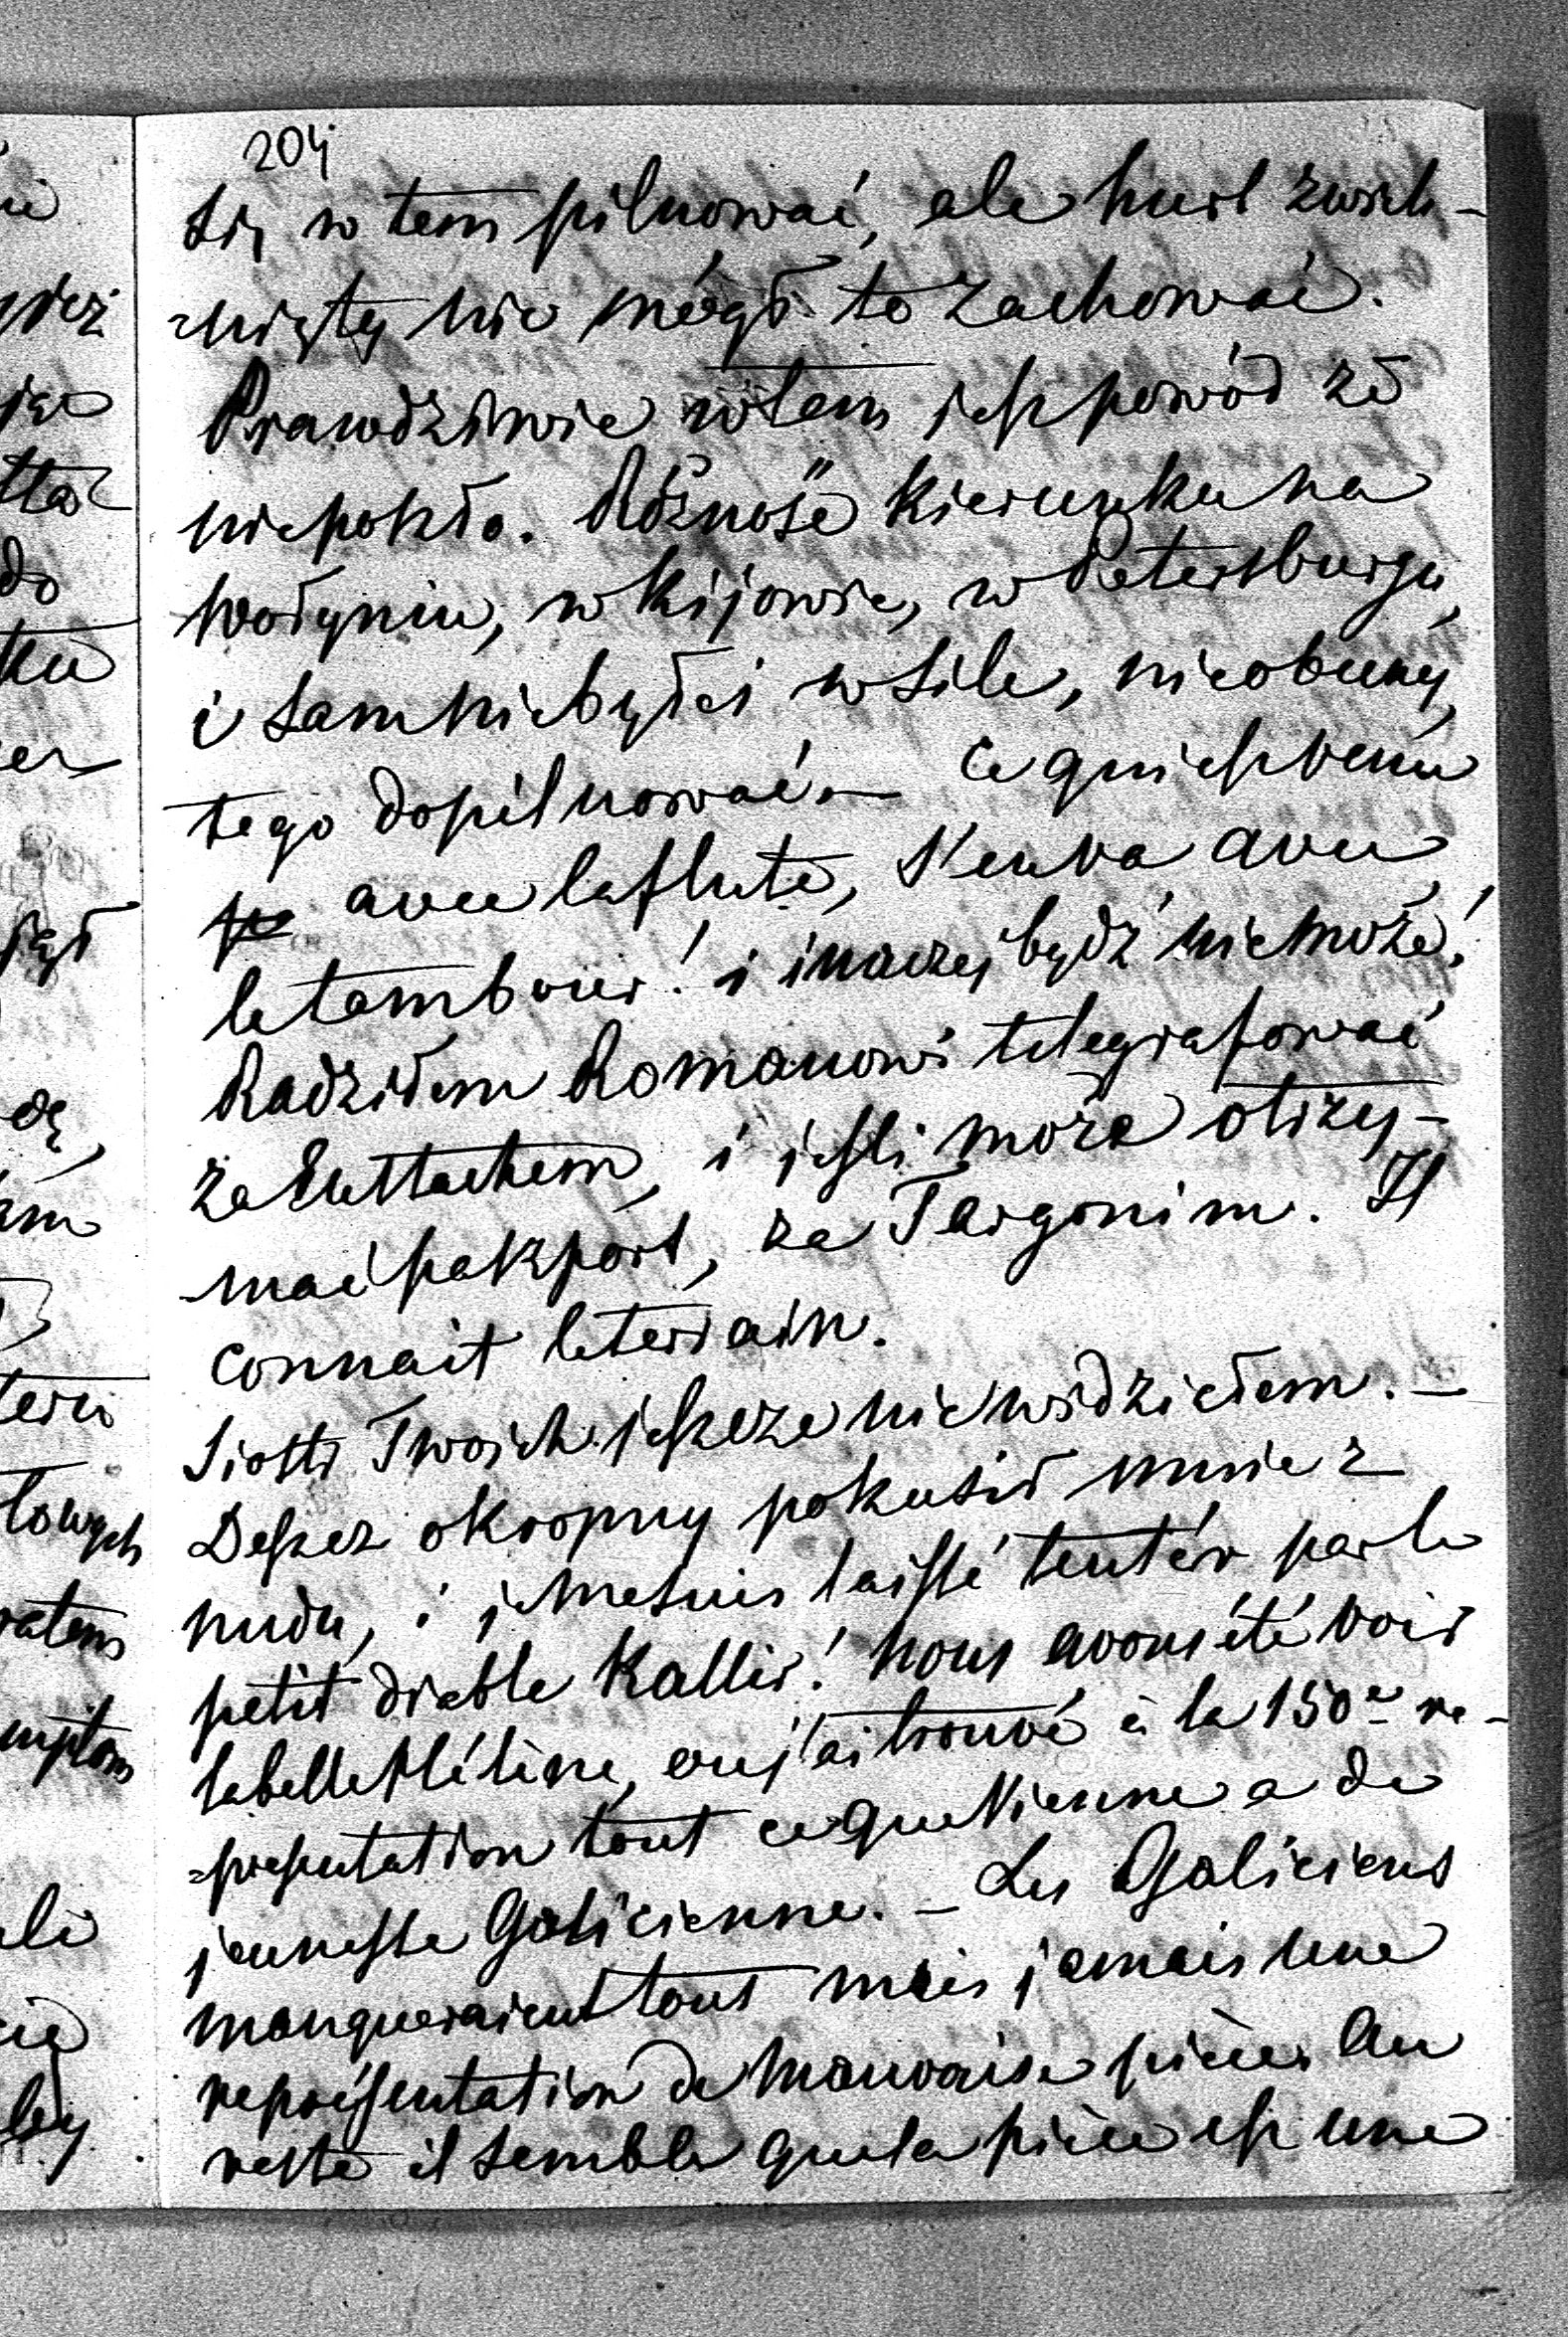 204
się w tem pilnować, ale hurt zwich-
=nięty nie mógł to zachować.
Prawdziwie w tem jest powód że
nie poszło. Różność kierunku na
Wołyniu, w Kijowie, w Petersburgu,
i sam nie byłeś w sile, nieobecny,
tego dopilnować. — Ce qui est venu
avec la flute, s'en va avec
le tambour! i inaczej bydź nie może!
Radziłem Romanowi telegrafować
za Eustachem, i jeśli może otrzy-
mać paszport, za Targonim. Il
connait le terrain.
Siostr Twoich jeszcze nie widziałem. —
Deszcz okropny pokusił mnie z
nudu, i je me suis laissé tentér par le
petit diable Kallir! nous avons été voir
la belle Hélène, ou j'ai trouvé à la 150e re-
=presentation tout ce que Vienne a de
jeunesse Galicienne. — Les Galiciens
manqueraient tout mais jamais une
représentation de mauvaise pièce. Au
reste il semble que la pièce est une